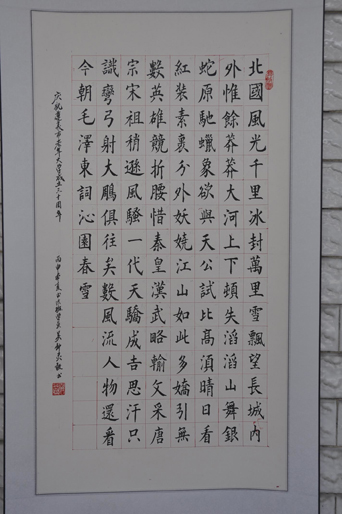 北國風光千里冰封萬里雪飄望長城內
外惟餘莽莽大河上下頓失滔滔山舞銀
蛇原馳蠟象欲與天公試比高湏晴日看
紅裝素裹分外妖嬈江山如此多嬌引無
數英雄競折腰惜秦皇漢武略輸文采唐
宗宋祖稍遜風騷一代天驕成吉思汗只
識彎弓射大鵰俱往矣數風流人物還看
今朝毛澤東詞沁園春雪
老年大学成立三十周年
丙申